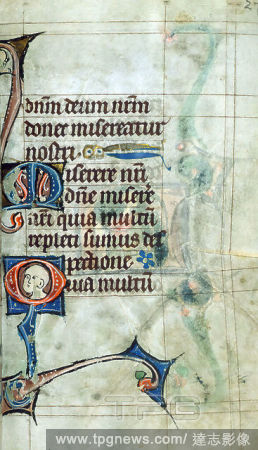 2
dn̄m deum nr̄m
donec misereatur
nostri.
Miserere nr̄i
dn̄e miserer̄e
nr̄i quia multū
repleti sumus des
pectione
Quia multū
TPG
www.tpgnews.com/ 達志影像